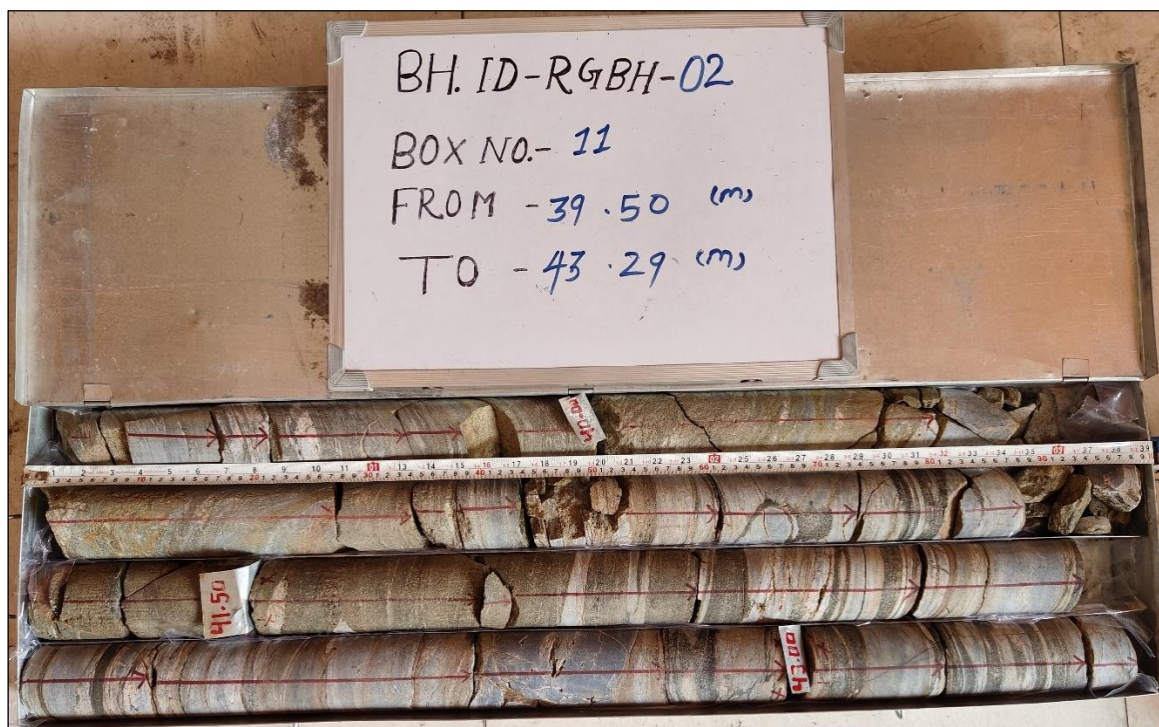 BH. ID-RGBH-02
BOX NO.- 11
FROM - 39.50 (m)
TO - 43.29 (m)
40.03
41.50
43.00